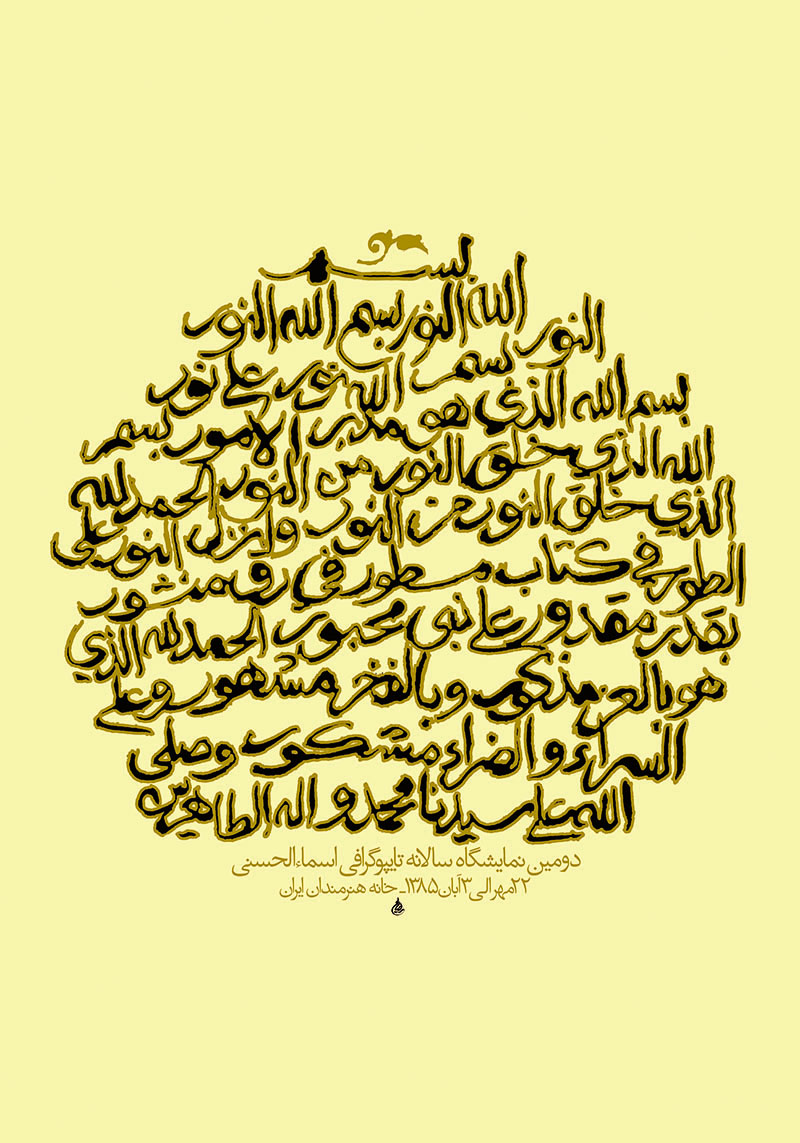 بسم
الله النور بسم الله النور
النور بسم الله نور على نور
بسم الله الذي هو مدبر الامور بسم
الله الذي خلق النور من النور الحمد لله
الذي خلق النور من النور وانزل النور على
الطور في كتاب مسطور في رق منشور
بقدر مقدور على نبي محبور الحمد لله الذي
هو بالعز مذكور و بالفخر مشهور و على
السراء و الضراء مشكور و صلى
الله على سيدنا محمد و اله الطاهرين
دومین نمایشگاه سالانه تایپوگرافی اسماءالحسنی
۲۲مهر الی ۳آبان ۱۳۸۵ـ خانه هنرمندان ایران